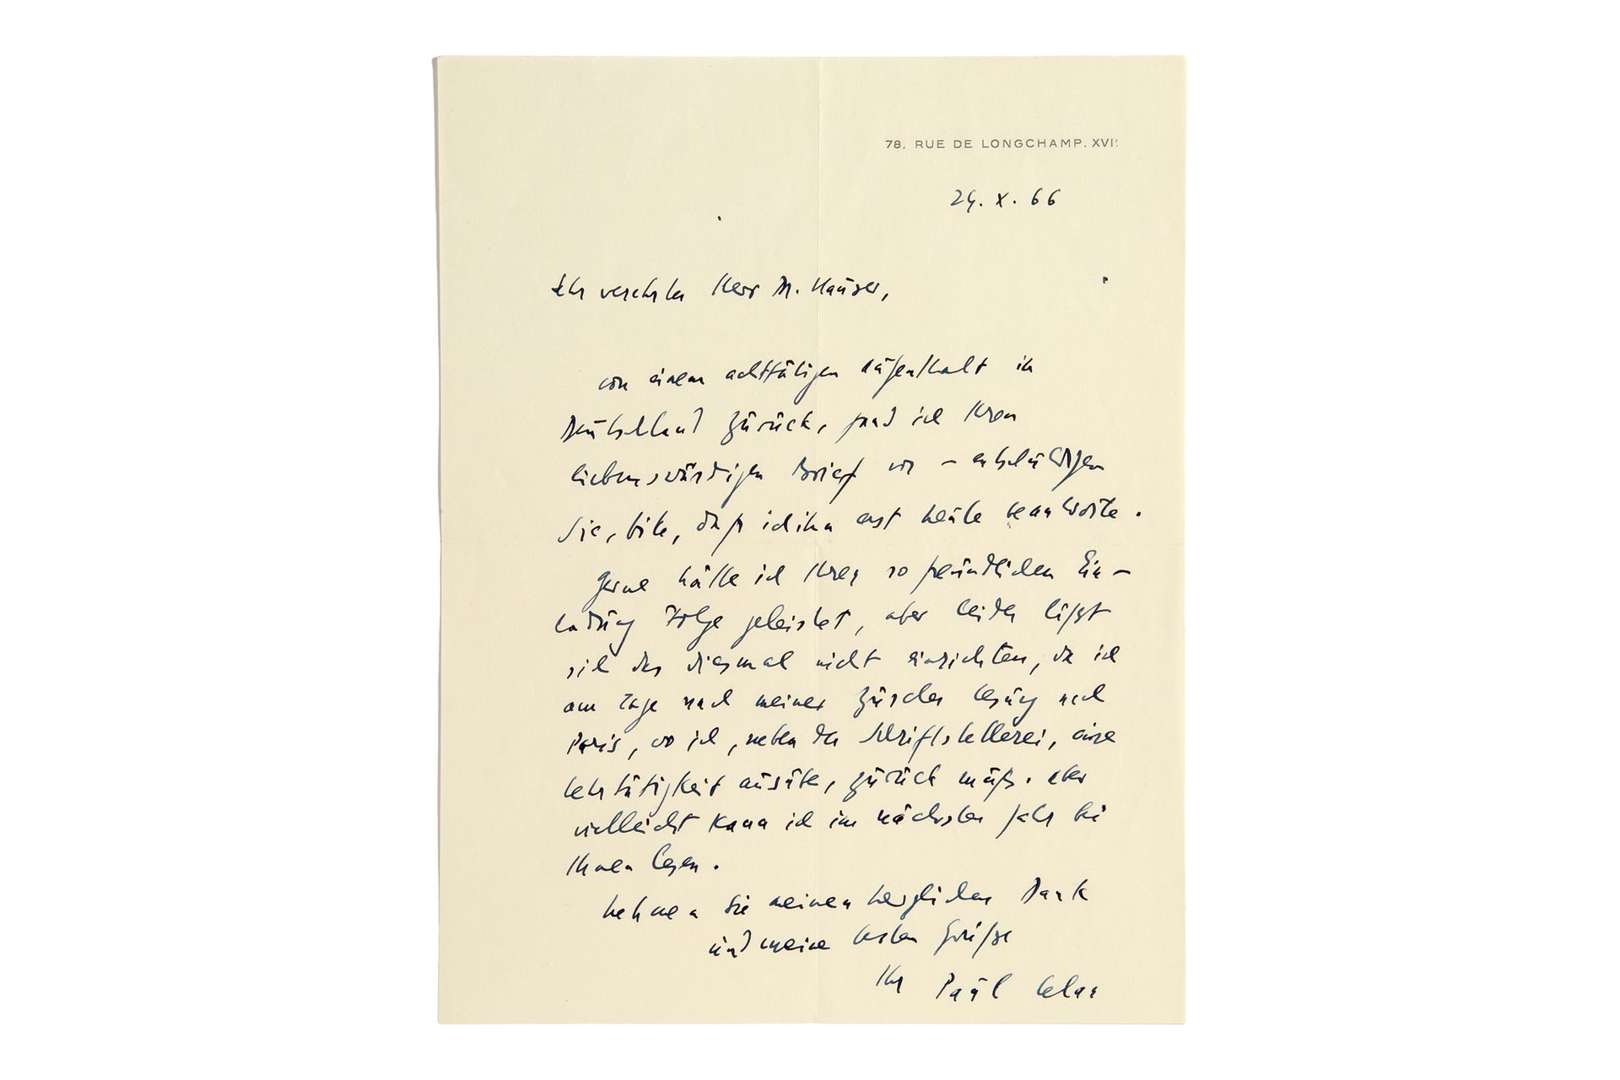 78, RUE DE LONGCHAMP. XVIE
24. X. 66
Sehr verehrter Herr Dr. Hauser,
von einem achttägigen Aufenthalt in
Deutschland zurück, fand ich Ihren
liebenswürdigen Brief vor – entschuldigen
Sie, bitte, daß ich ihn erst heute beantworte.
Gerne hätte ich Ihrer so freundlichen Ein-
ladung Folge geleistet, aber leider läßt
sich das diesmal nicht einrichten, da ich
am Tage nach meiner Zürcher Lesung nach
Paris, wo ich, neben der Schriftstellerei, eine
Lehrtätigkeit ausübe, zurück muß. Aber
vielleicht kann ich im nächsten Jahr bei
Ihnen lesen.
Nehmen Sie meinen herzlichen Dank
und meine besten Grüße
Ihr Paul Celan